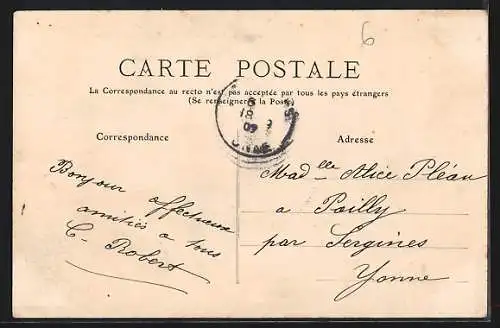 6
CARTE POSTALE
La Correspondance au recto n'est pas acceptée par tous les pays étrangers
(Se renseigner à la Poste)
Correspondance
Adresse
Bonjour affectueux
amitiés a tous
C. Robert
Madelle Alice Pléau
a Pailly
par Sergines
Yonne
18
09
YONNE